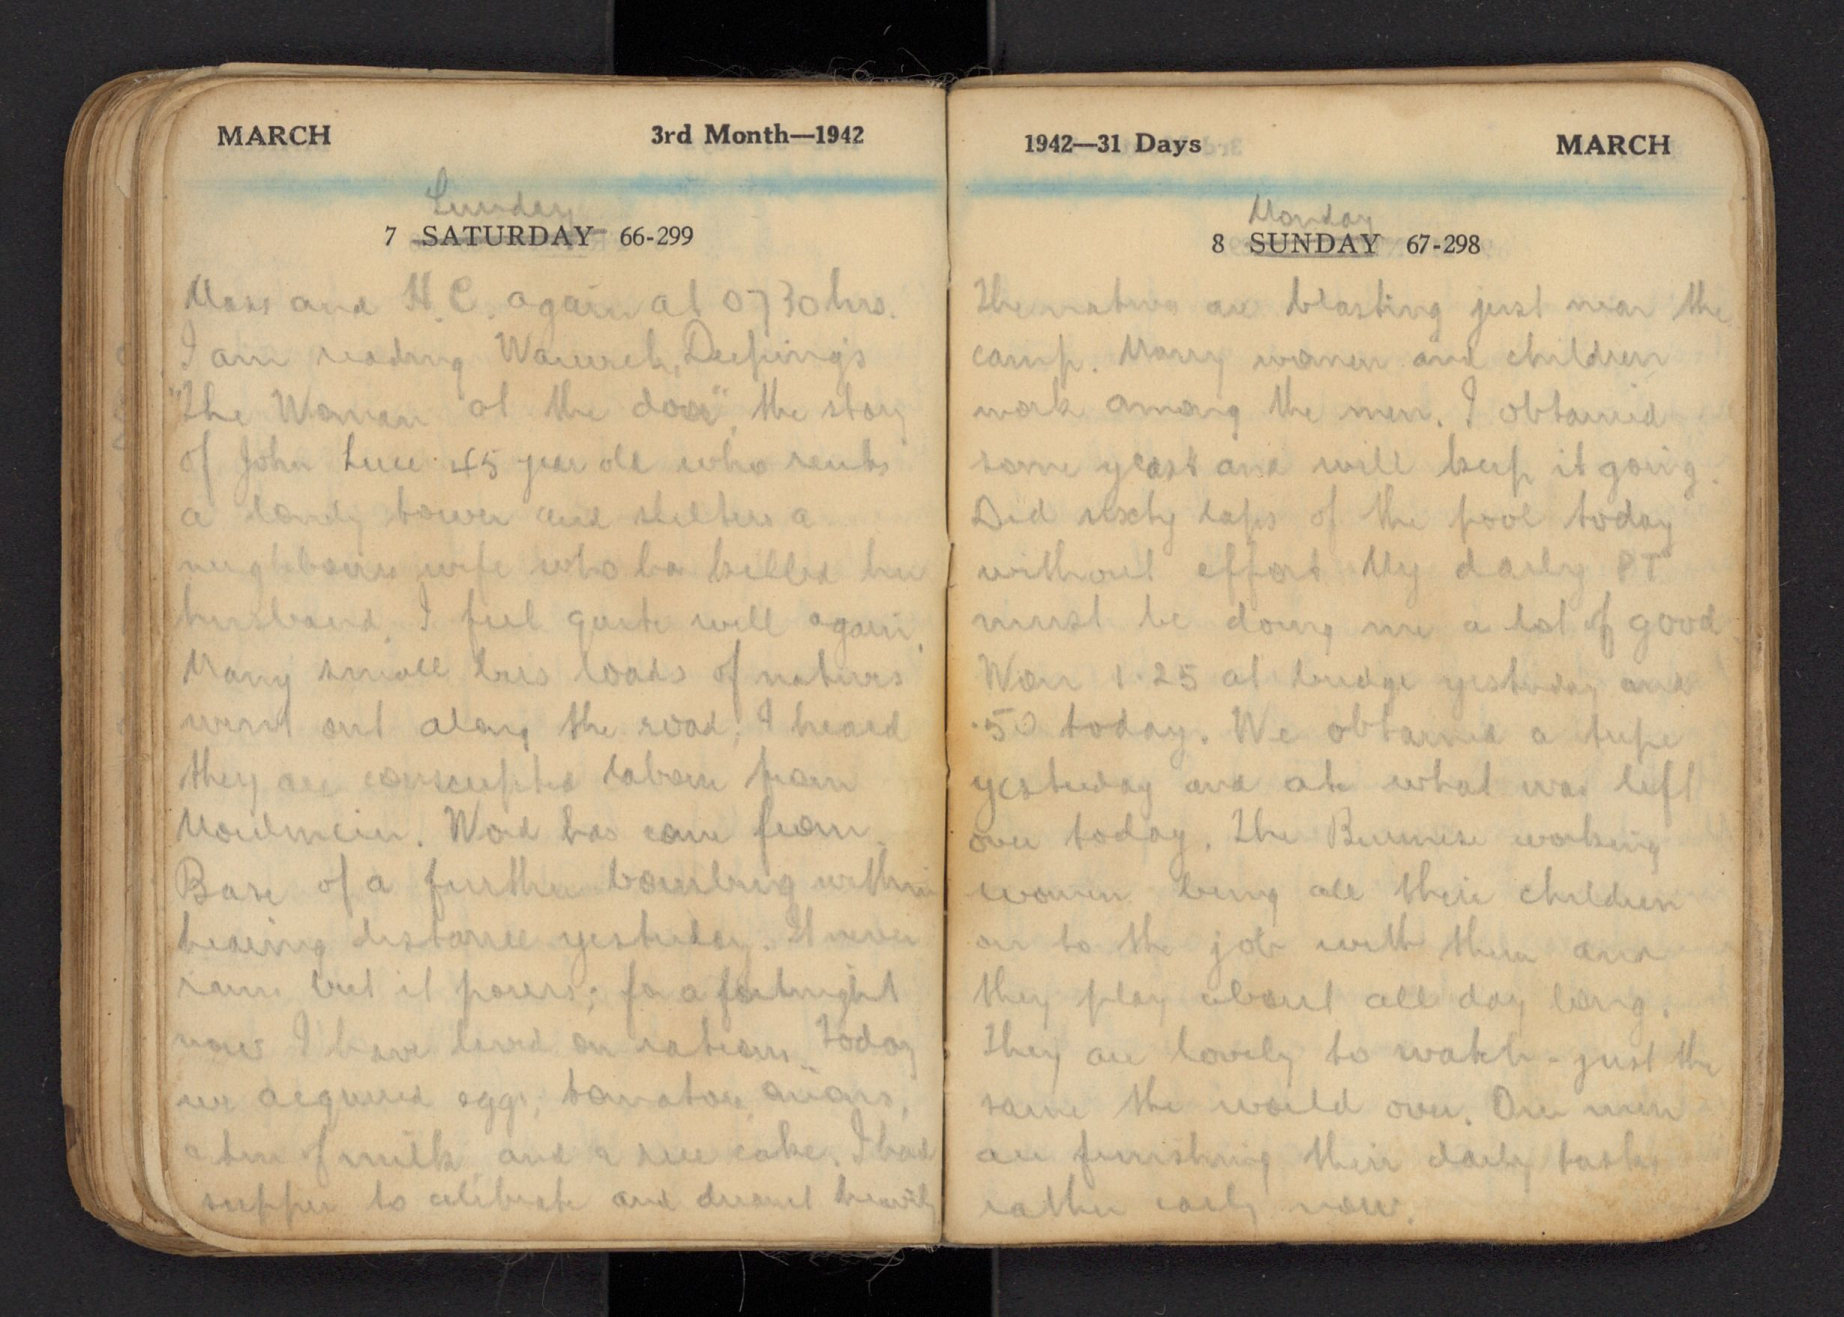 MARCH 3rd Month—1942
Sunday
7 SATURDAY 66-299
Mass and H.C. again at 0730 hrs.
I am reading Warwick Deeping's
"The Woman at the door", the story
of John Luce 45 year old who rents
a lonely tower and shelters a
neighbours wife who has killed her
husband. I feel quite well again.
Many small bus loads of natives
went out along the road; I heard
they are conscripted labour from
Moulmein. Word has come from
Base of a further bombing within
hearing distance yesterday. It never
rains but it pours; for a fortnight
now I have lived on rations. Today
we acquired eggs, tomatoes, onions,
a tin of milk and a rice cake. I had
supper to celebrate and dreamt heavily
1942—31 Days MARCH
Monday
8 SUNDAY 67-298
The natives are blasting just near the
camp. Many women and children
work among the men. I obtained
some yeast and will keep it going.
Did sixty laps of the pool today
without effort My daily PT
must be doing me a lot of good
Won 1.25 at bridge yesterday and
.50 today. We obtained a tripe
yesterday and ate what was left
over today. The Burmese working
women bring all their children
on to the job with them and
they play about all day long.
They are lovely to watch - just the
same the world over. Our men
are finishing their daily tasks
rather early now.